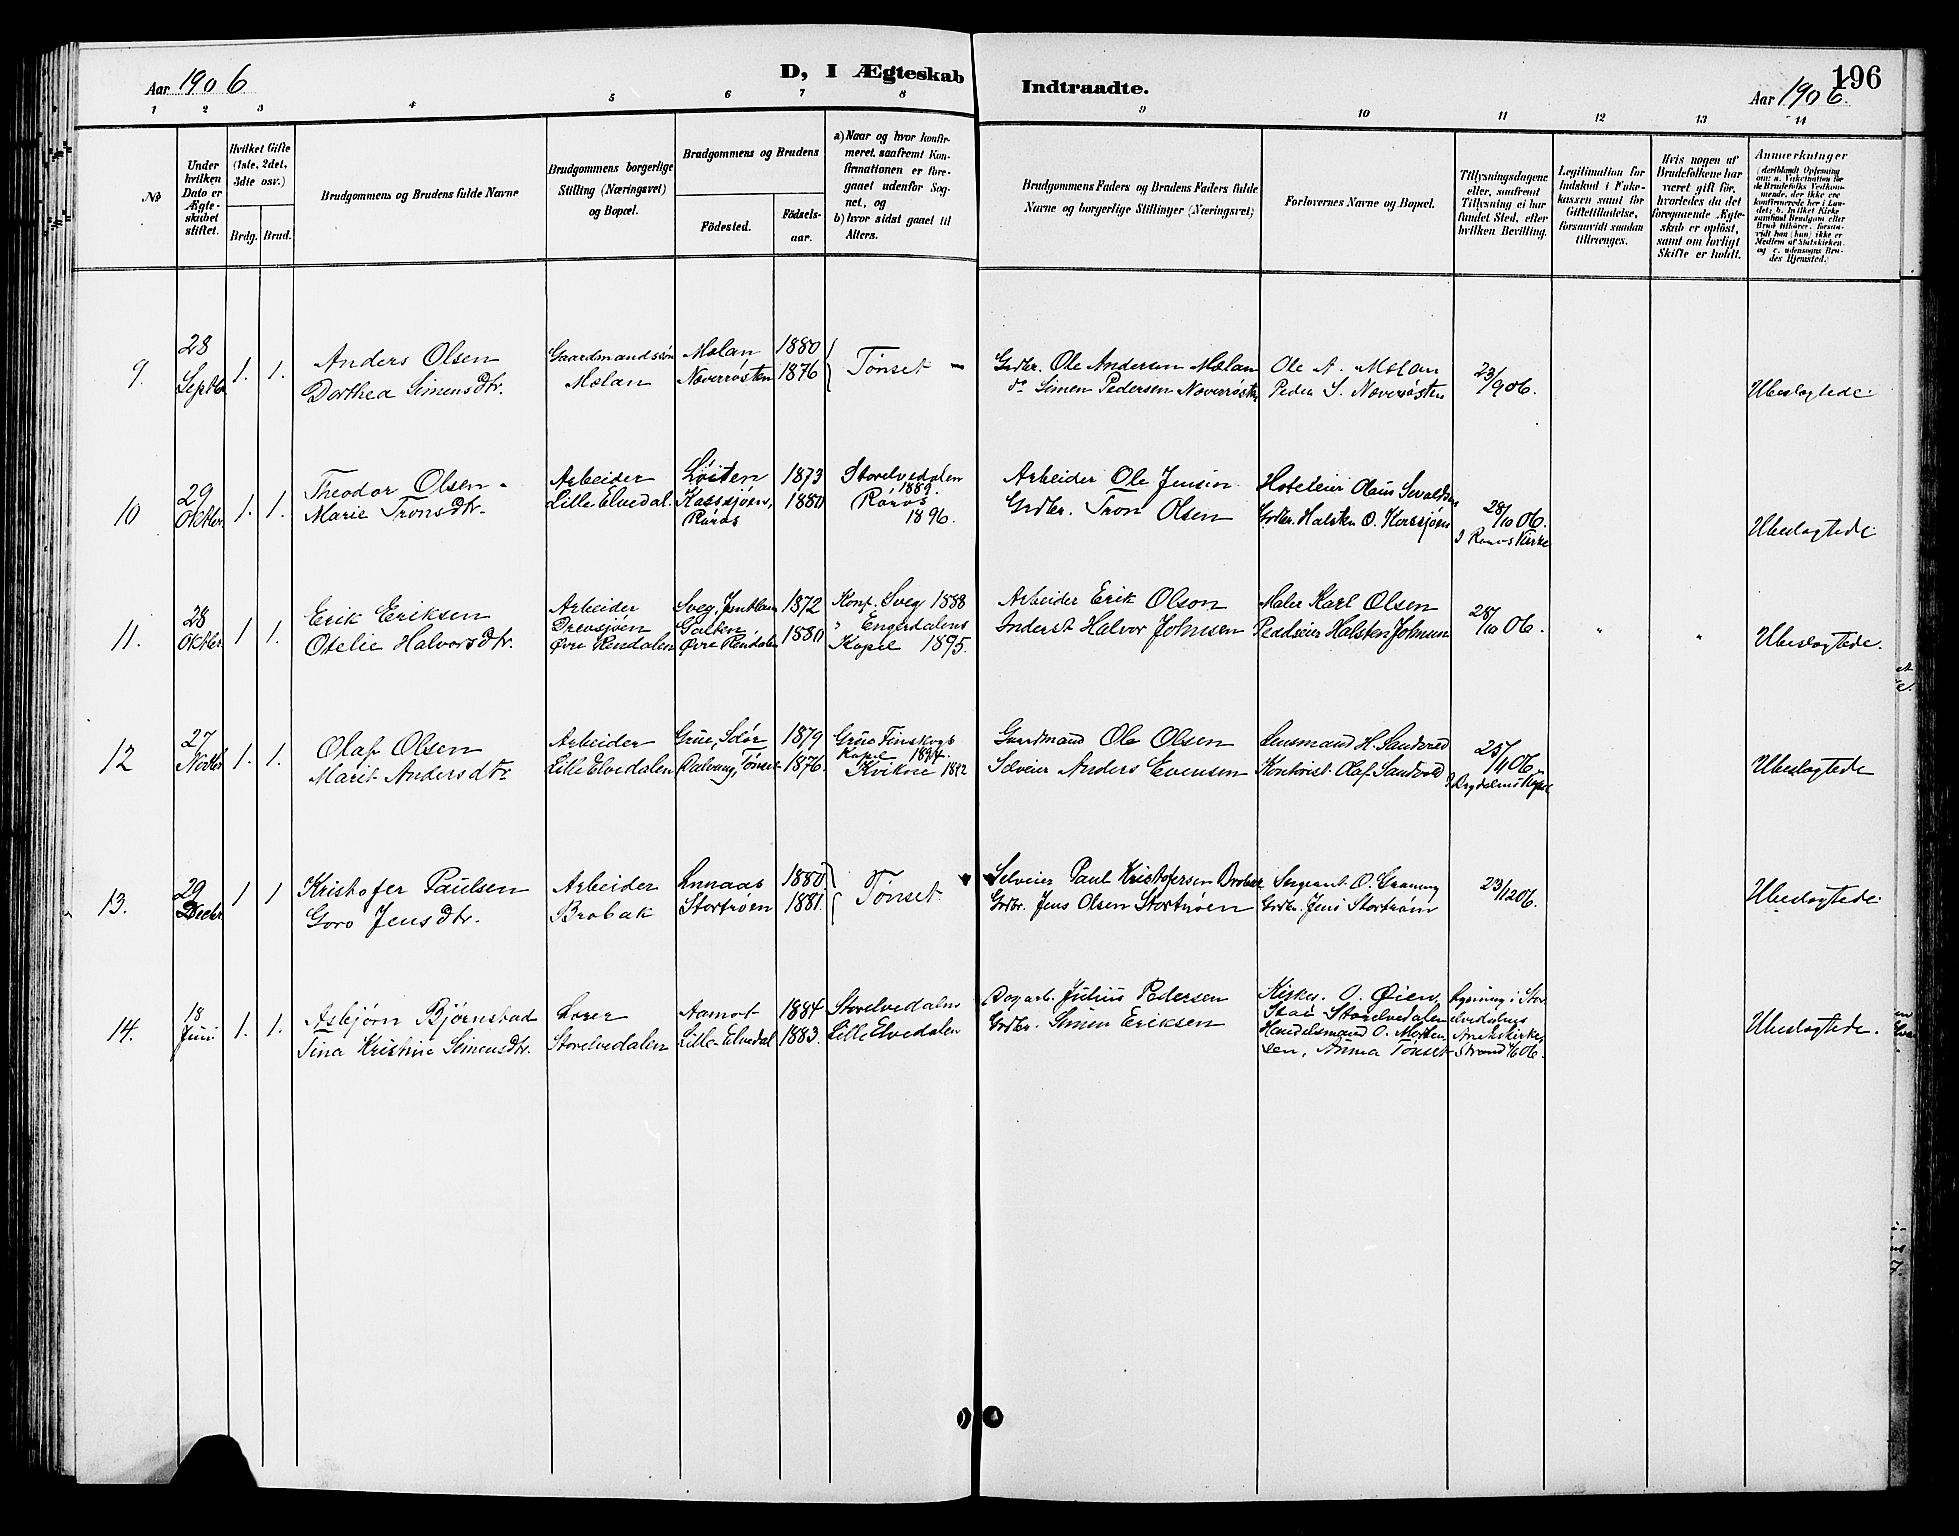 Aar 1906
D, I Ægteskab
Indtraadte.
196
Aar 1906.
1 2 3 4 5 6 7 8 9 10 11 12 13 14
No
Under hvilken Dato er Ægteskabet stiftet.
Hvilket Gifte (1ste, 2det, 3die osv.)
Brdg. Brud.
Brudgommens og Brudens fulde Navne
Brudgommens borgerlige Stilling (Næringsvei) og Bopæl.
Brudgommens og Brudens
Födested.
Födselsaar.
a) Naar og hvor konfirmeret, saafremt Konfirmationen er foregaaet udenfor Sognet, og
b) hvor sidst gaaet til Alters.
Brudgommens Faders og Brudens Faders fulde Navne og borgerlige Stillinger (Næringsvei)
Forlovernes Navne og Bopæl.
Tillysningsdagene eller, saafremt Tillysning ei har fundet Sted, efter hvilken Bevilling.
Legitimation for Indskud i Enkekassen samt for Giftetilladelse, forsaavidt saadan tiltrænges.
Hvis nogen af Brudefolkene har været gift før, hvorledes da det foregaaende Ægteskab er oplöst, samt om lovligt Skifte er holdt.
Anmærkninger
9.
28 Septb
1. 1.
Anders Olsen
Dorthea Simensdtr.
Gaardmandssøn
Mølan
Mølan 1880
Næverrøsten 1876
Tønset
Grdbr. Ole Andersen Mølan
do Simen Pedersen Næverrøsten
Ole A. Mølan
Peder S. Næverrøsten
23/9 06.
Ubeslægtede
10
29 Oktbr.
1. 1.
Theodor Olsen
Marie Tronsdtr.
Arbeider
Lille Elvedal.
Løiten 1873
Korssjøen, 1880
Røros
Storelvedalen 1889.
Røros 1896.
Arbeider Ole Jensen
Grdbr. Tron Olsen
Hoteleier Olaus Sevaldsen
Grdbr. Halsten O. Korssjøen
28/10 06.
I Røros Kirke
Ubeslægtede
11.
28 Oktbr.
1 1.
Erik Eriksen
Otelie Halvorsdtr.
Arbeider
Drevsjøen
Øvre Rendalen
Sveg, Jemtland 1872
Galten 1880
Øvre Rendalen
Konf. Sveg 1888
" Engerdalens
Kapel 1895.
Arbeider Erik Olson
Inderst Halvor Johnsen
Maler Karl Olsen
Halsten Johnsen
28/10 06.
" "
Ubeslægtede.
12
27 Novbr
1. 1.
Olaf Olsen
Marit Andersdtr
Arbeider
Lille Elvedalen
Grue, Solør 1879
Tønset 1876.
Grue Finskogs
Kapel 1894.
Kvikne 1892
Gaardmand Ole Olsen
Selveier Anders Evensen
Lensmand H. Sandvold
Kontorist Olaf Sandvold
25/11 06.
Ubeslægtede
13.
29 Decbr
1 1
Kristofer Paulsen
Goro Jensdtr.
Arbeider
Brobak
Innaas 1880
Stortrøen 1881.
Tønset
Selveier Paul Kristofersen Brobak
Grdbr. Jens Olsen Stortrøen
Sergeant O. Graning
Grdbr. Jens Stortrøen
23/12 06.
Ubeslægtede
14.
18 Juni
1. 1.
Asbjørn Bjørnstad
Tina Kristine Simensdtr.
Lærer
Storelvedalen
Aamot 1884
Lille-Elvedal 1883.
Storelvedalen
Lille Elvedalen
Dagarb. Julius Pedersen
Grdbr. Simen Eriksen
Kirkes. O. Øien,
Stai Storelvedalen
Handelsmand O. Morten-
sen, Anma Tønset
Lysning i Stor
elvedalens
Annekskirke,
Strand 06.
Ubeslægtede.